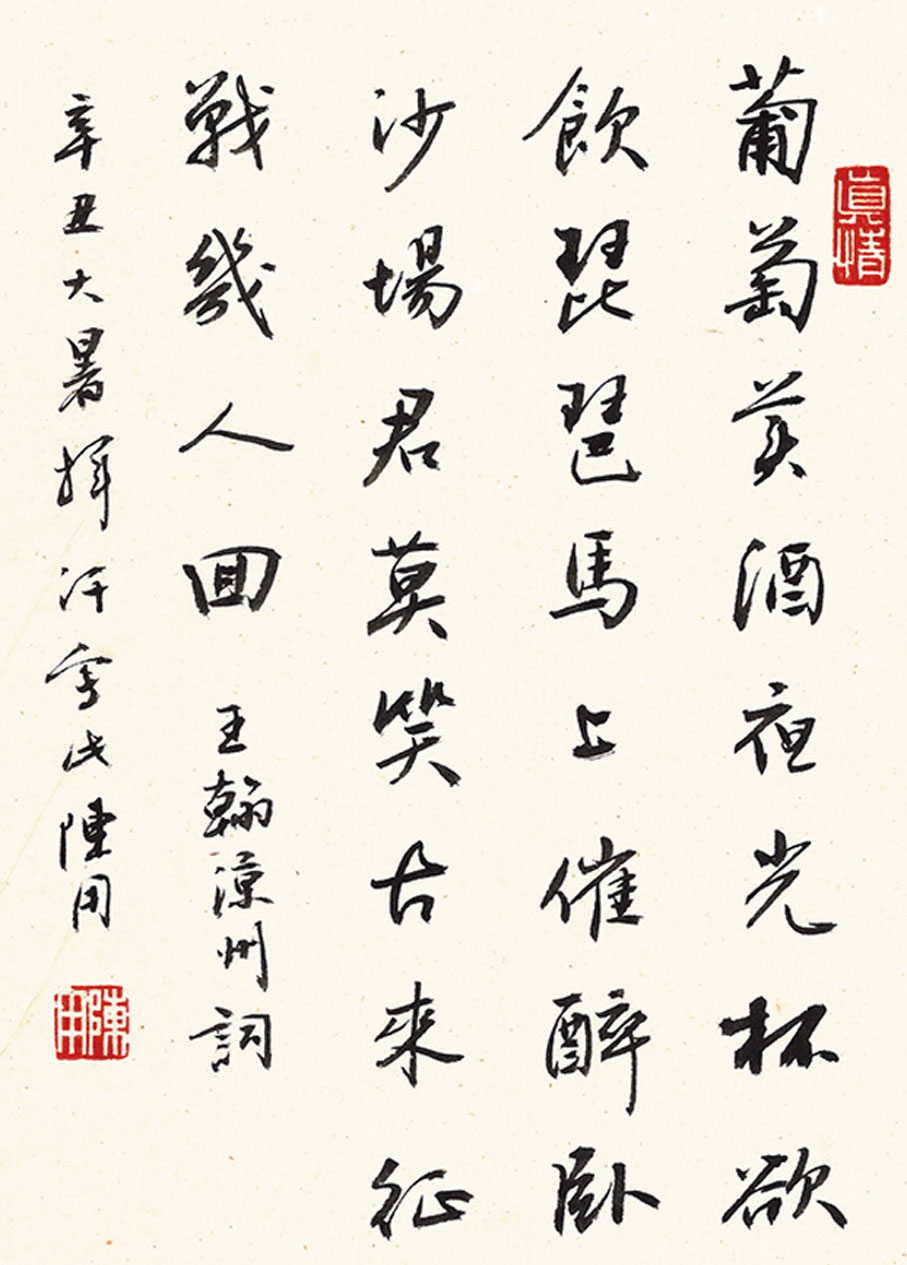 眞情
葡萄美酒夜光杯欲
飲琵琶馬上催醉卧
沙場君莫笑古來征
戰幾人回
王翰涼州詞
辛丑大暑揮汗寫此陳用
陳用